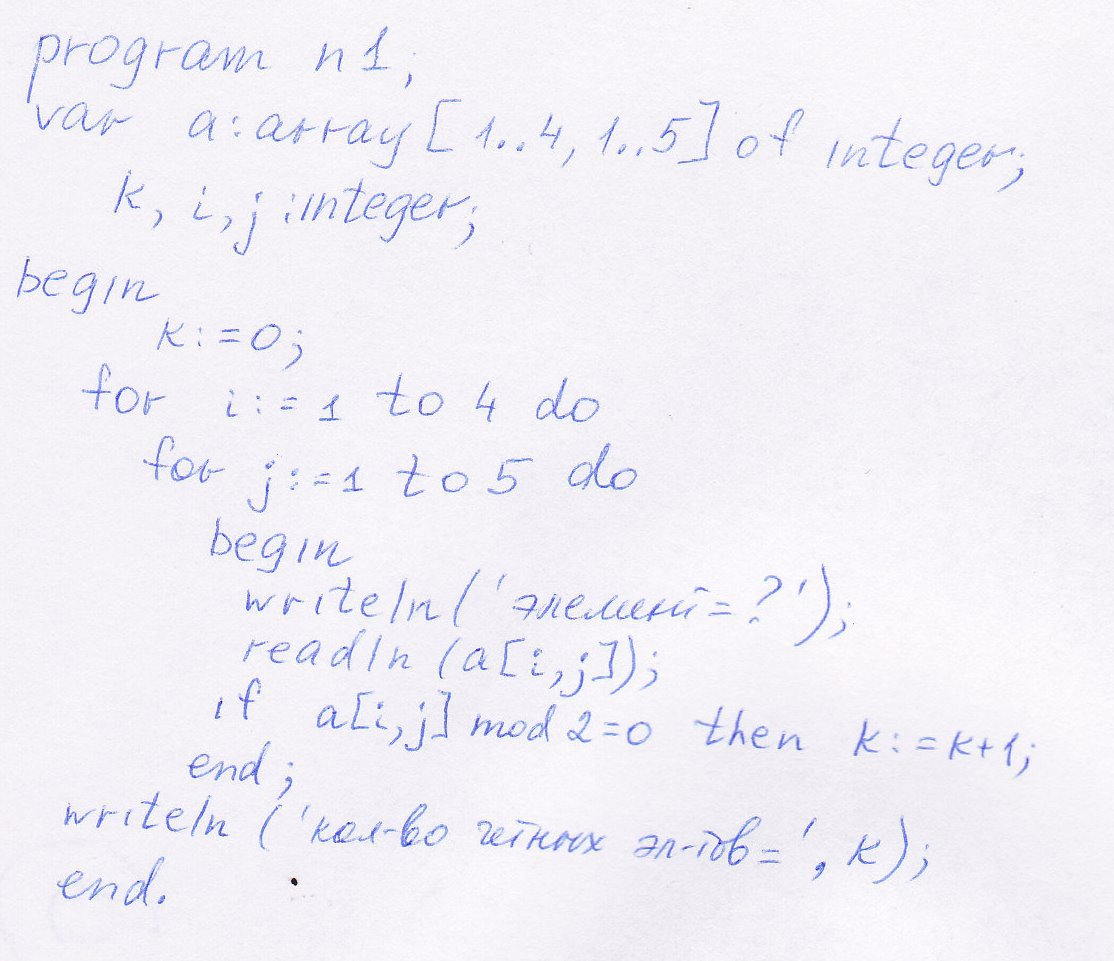 program n1;
var a:array[1..4,1..5] of integer;
k, i, j:integer;
begin
k:=0;
for i:=1 to 4 do
for j:=1 to 5 do
begin
writeln('элемент=?');
readln(a[i,j]);
if a[i,j] mod 2=0 then k:=k+1;
end;
writeln('кол-во чётных эл-тов=', k);
end.